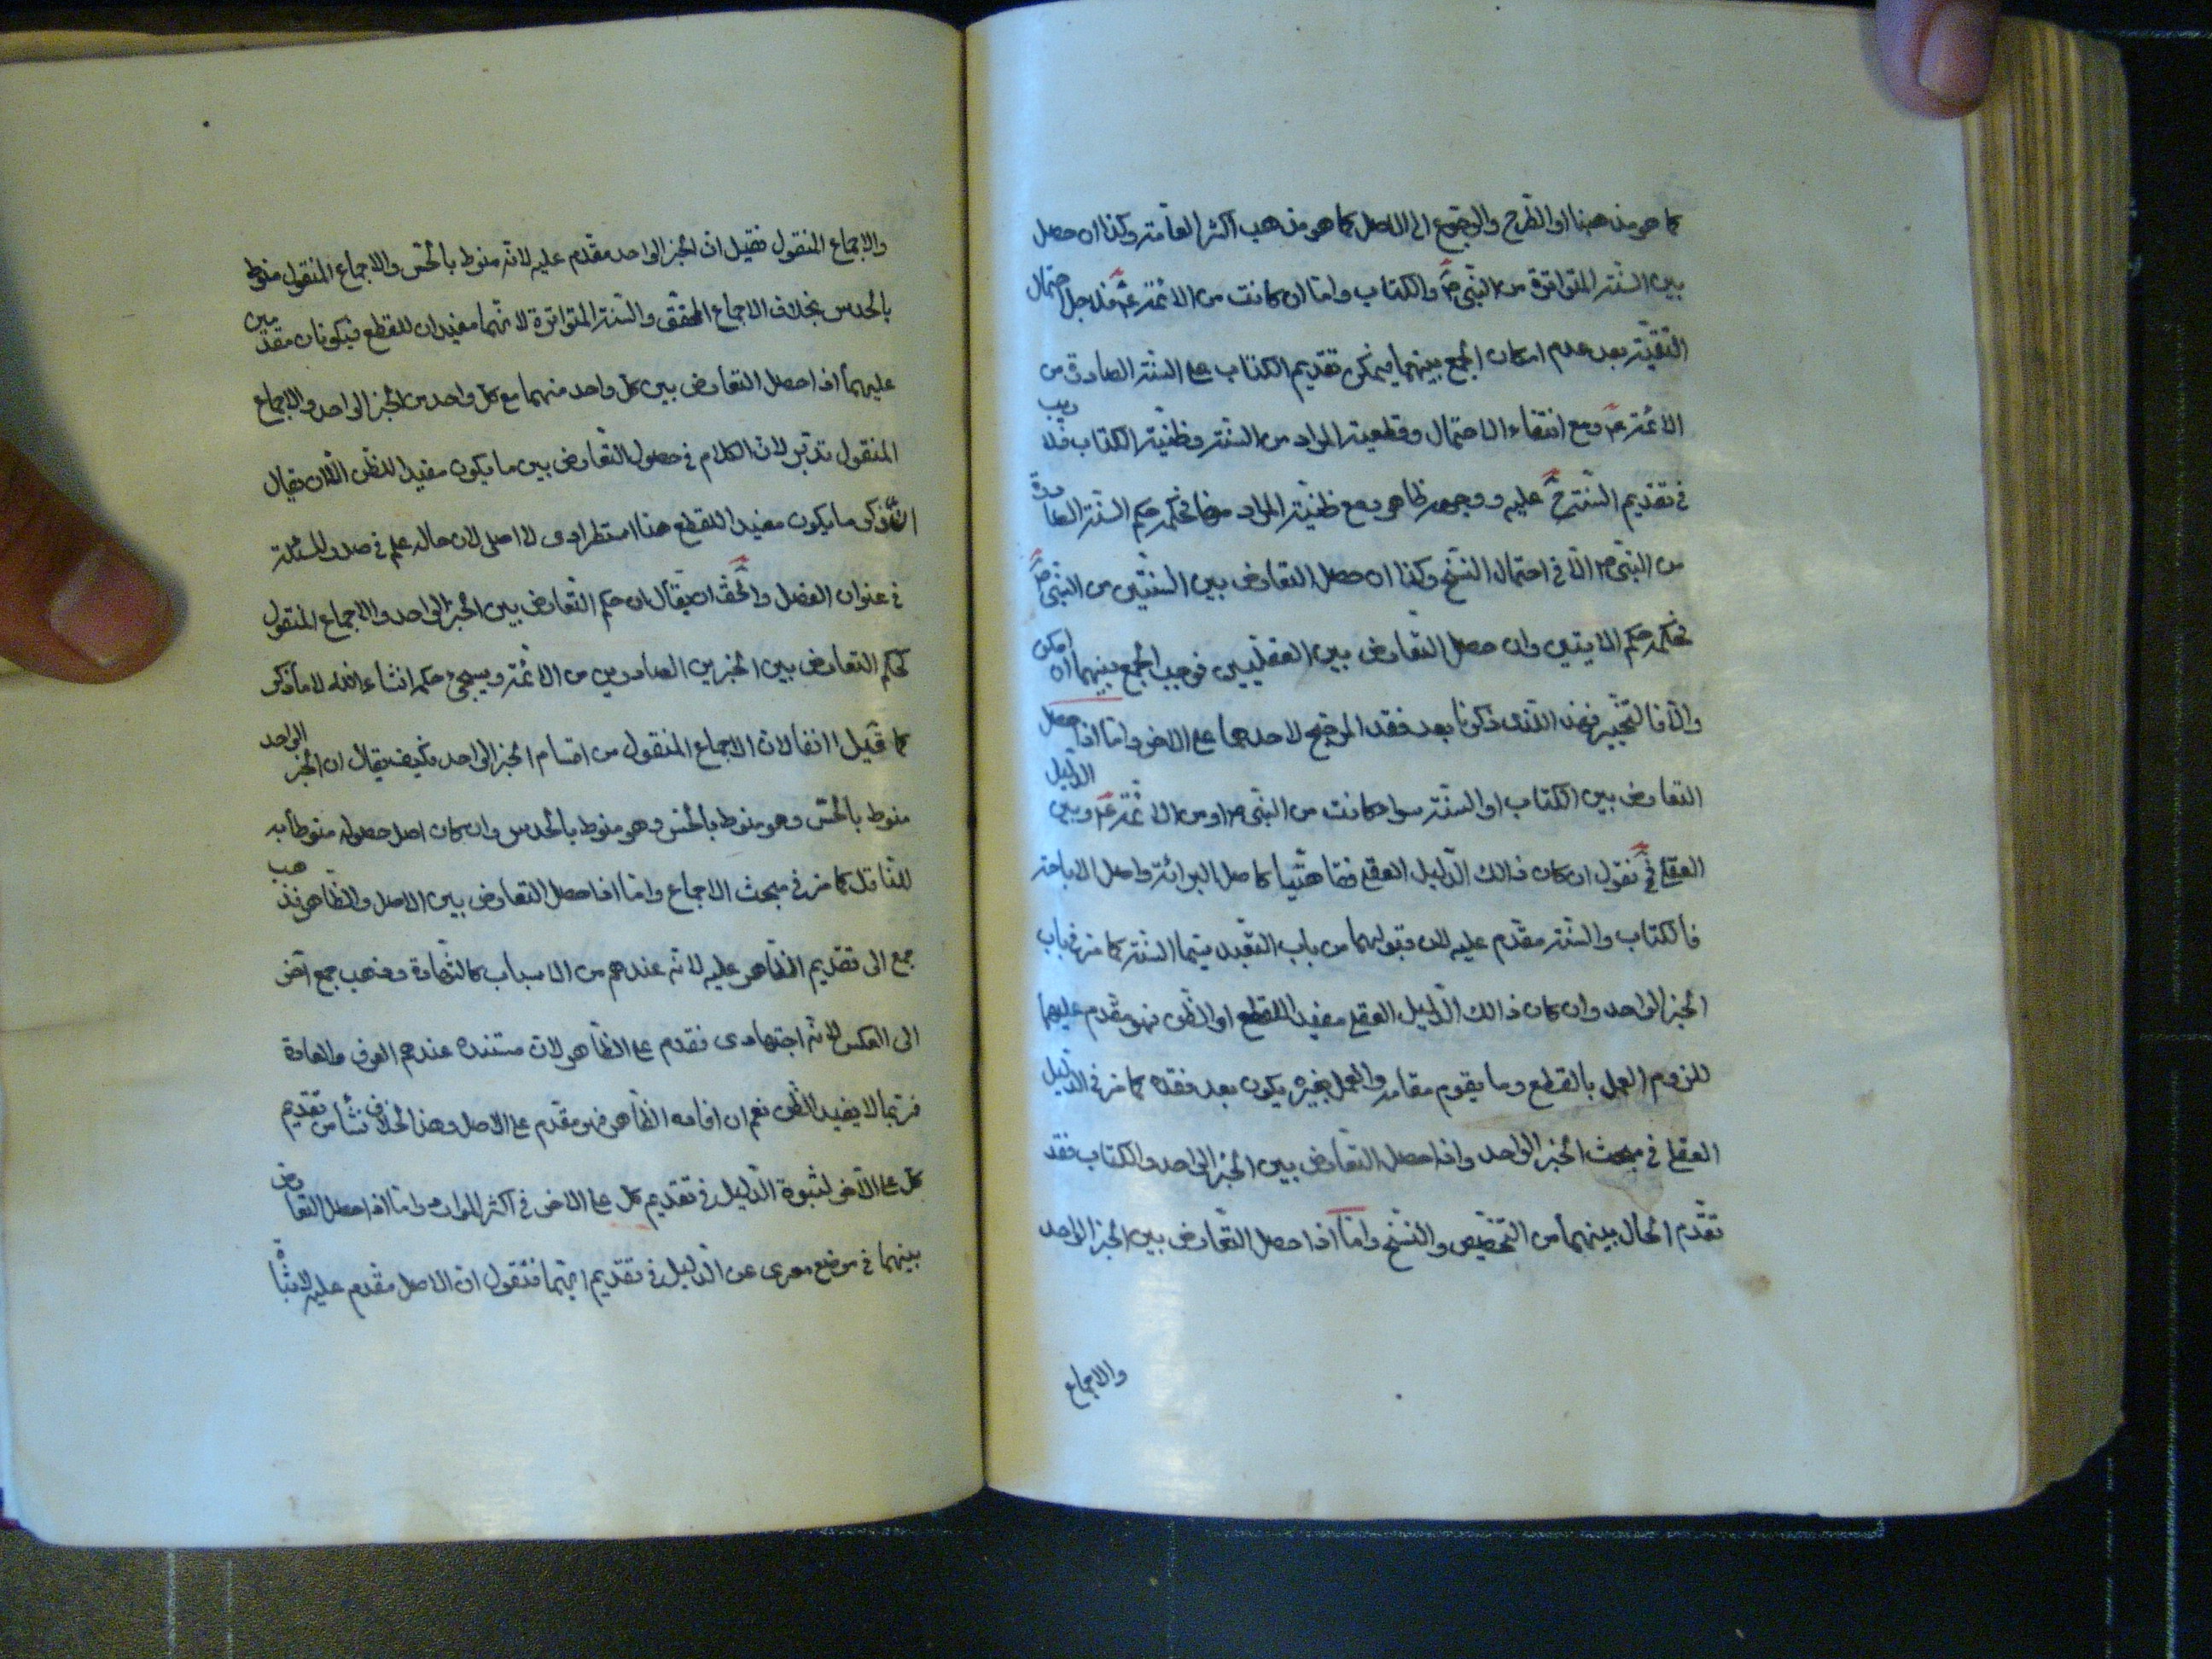 كما هو مذهبنا او الطرح والرجوع الى الاصل كما هو مذهب اكثر العامة وكذا ان حصل
بين السنة المتواترة من النبي ص والكتاب واما ان كانت من الائمة ع فلاجل احتمال
التقية بعد عدم امكان الجمع بينهما فيمكن تقديم الكتاب على السنة الصادرة من
الائمة ع ومع انتفاء الاحتمال وقطعية المراد من السنة وظنية الكتاب فلا ريب
في تقديم السنة ح عليه ووجهه ظاهر ومع ظنية المراد منها فحكمه حكم السنة الصادرة
من النبي ص الا في احتمال النسخ وكذا ان حصل التعارض بين السنتين من النبي ص
فحكمه حكم الايتين وان حصل التعارض بين العقليين فوجب الجمع بينهما ان امكن
والا فالتخيير فهذا الذى ذكرنا بعد فقد المرجح لاحدهما على الاخر واما اذا حصل
التعارض بين الكتاب او السنة سواء كانت من النبي ص او من الائمة ع وبين الدليل
العقلي فح نقول ان كان ذالك الدليل العقلي فقاهتيا كاصل البرائة واصل الاباحة
فالكتاب والسنة مقدم عليه لان قبولهما من باب التعبد سيما السنة كما مر في باب
الخبر الواحد وان كان ذالك الدليل العقلي مفيدا للقطع او الظن فهو مقدم عليهما
للزوم العمل بالقطع وما يقوم مقامه والعمل بغيره يكون بعد فقده كما مر في الدليل
العقلي في مبحث الخبر الواحد واذا حصل التعارض بين الخبر الواحد والكتاب فقد
تقدم الحال بينهما من التخصيص والنسخ واما اذا حصل التعارض بين الخبر الواحد
والاجماع
والاجماع المنقول فقيل ان الخبر الواحد مقدم عليه لانه منوط بالحس والاجماع المنقول منوط
بالحدس بخلاف الاجماع المحقق والسنة المتواترة لانهما مفيدان للقطع فيكونان مقدمين
عليهما اذا حصل التعارض بين كل واحد منهما مع كل واحد من الخبر الواحد والاجماع
المنقول تدبر لان الكلام في حصول التعارض بين ما يكون مفيدا للظن الا ان يقال
ان ذكر ما يكون مفيدا للقطع هنا استطرادى لا اصلى لان حاله علم في صدر المسئلة
في عنوان الفصل والحق ان يقال ان حكم التعارض بين الخبر الواحد والاجماع المنقول
كحكم التعارض بين الخبرين الصادرين من الائمة وسيجئ حكمه انشاء الله لا ما ذكر
كما قيل انفا لان الاجماع المنقول من اقسام الخبر الواحد فكيف يقال ان الخبر الواحد
منوط بالحس وهو منوط بالحس وهو منوط بالحدس وان كان اصل حصوله منوطا به
للناقل كما مر في مبحث الاجماع واما اذا حصل التعارض بين الاصل والظاهر فذهب
جمع الى تقديم الظاهر عليه لانه عندهم من الاسباب كالشهادة وذهب جمع آخر
الى العكس لانه اجتهادى فقدم على الظاهر لان مستنده عندهم العرف والعادة
فربما لا يفيد الظن نعم ان افاده الظاهر فهو مقدم على الاصل وهذا الخلاف نشأ من تقديم
كل على الآخر لثبوة الدليل في تقديم كل على الاخر في اكثر الموارد واما اذا حصل التعارض
بينهما في موضع معرى عن الدليل في تقديم ايهما فنقول ان الاصل مقدم عليه